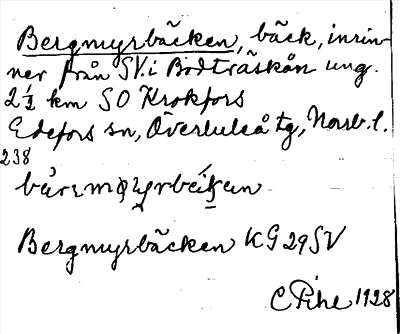 Bergmyrbäcken, bäck, inrin-
ner från SV. i Bodträskån ung.
2½ km SO Krokfors
Edefors sn, Överluleå tg, Norrb. l.
238
Bergmyrbäcken KG 29 SV
C Pihl 1928